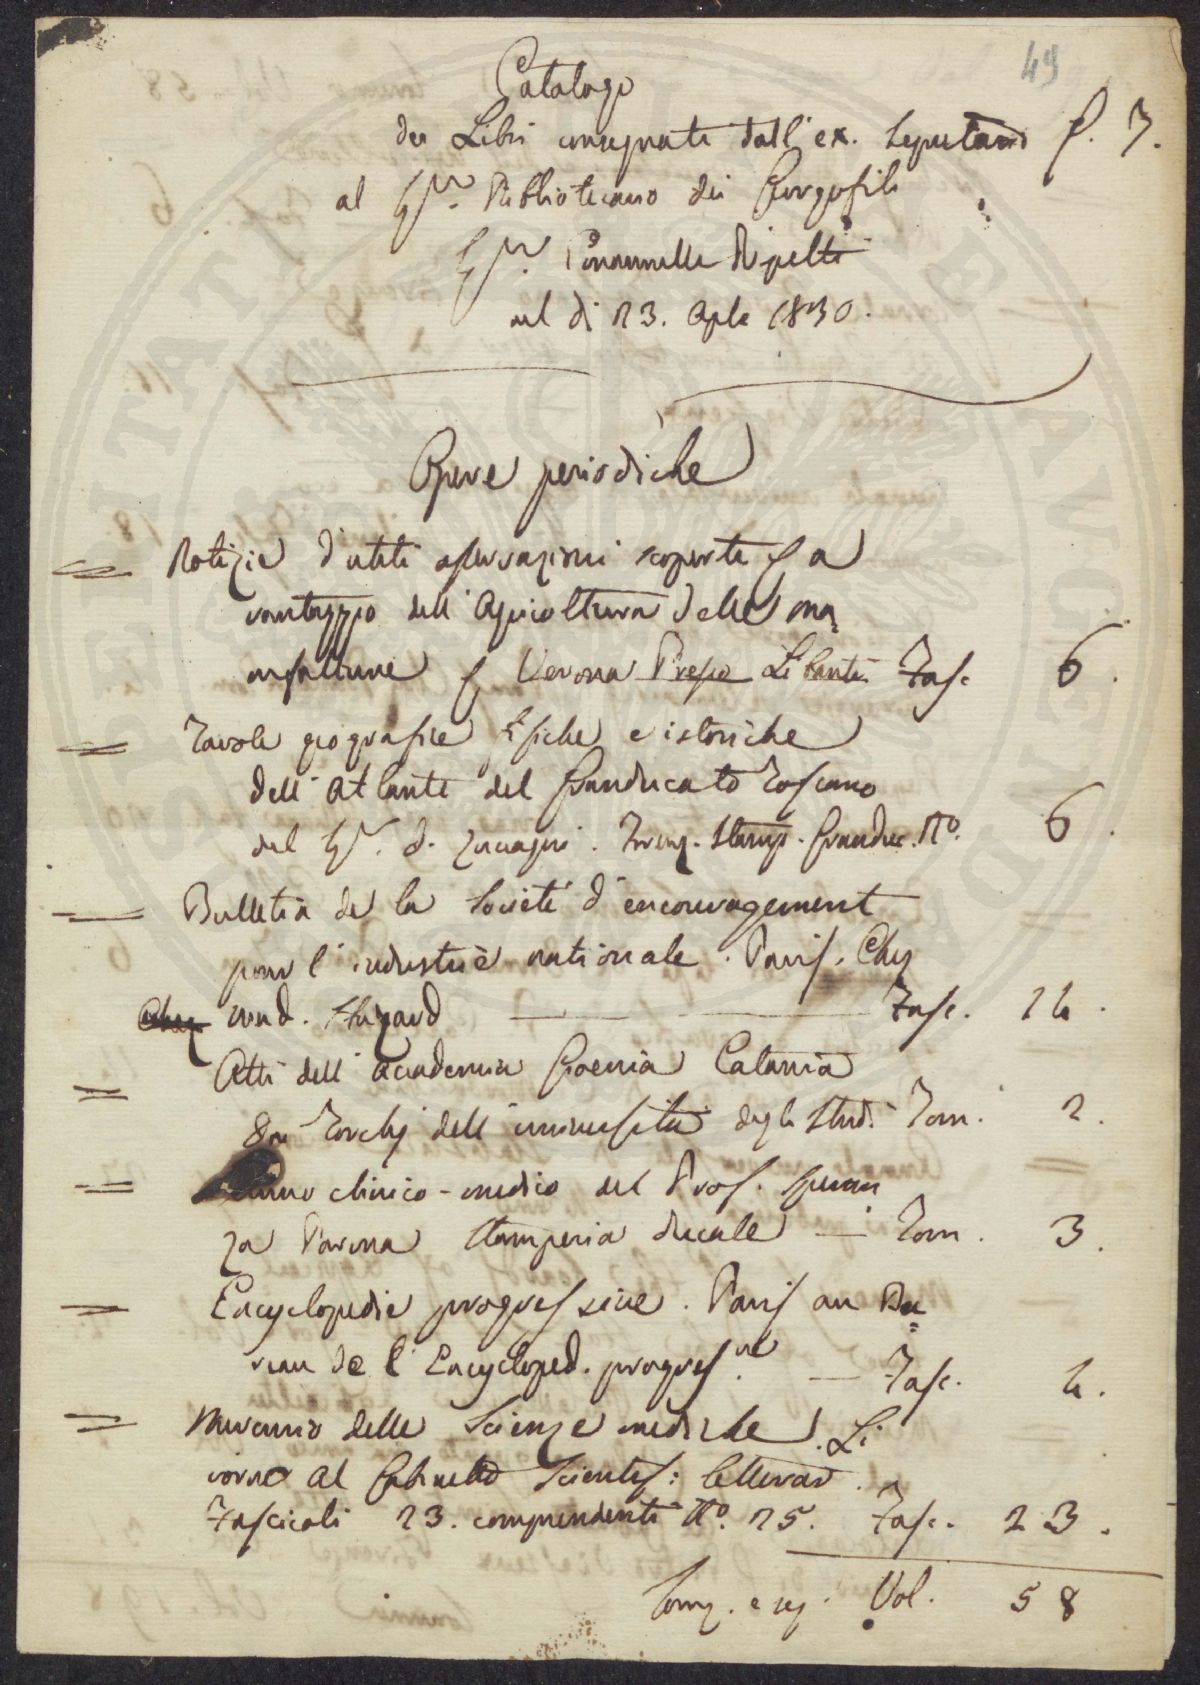 49
Catalogo
dei Libri consegnati dall' ex. Segretario P. T.
al Sigr. Bibliotecario dei Georgofili
Sigr. Emanuelle Repetti
nel di 23. Aple 1830.
Opere periodiche
Notizie d'utili osservazioni scoperte a
vantaggio dell' Agricoltura delle ma
nifatture Verona Presso Libanti Fasc. 6.
Tavole geografice fisiche e istoriche
dell' Atlante del Granducato Toscano
del Sigr. d. Zuccagni. Firenz. Stamp. Granduc. No. 6.
Bulletin de la Société d'encouragement
pour l'industrie nationale. Paris. Chez
Mad. Huzard Fasc. 14.
Atti dell' Accademia Gioenia Catania
Torchj dell' università degli Studi Tom. 2.
Anno clinico-medico del Prof. Speran
za Parma Stamperia ducale Tom. 3.
Encyclopedie progressive. Paris au Bu
reau de l'Encycloped. progresve. Fasc. 4.
Mercurio delle Scienze mediche. Li
vorno al Gabinetto Scientif: letterar.
Fascicoli 23. comprendenti No. 25. Fasc. 23.
Somm. e seg. Vol. 58